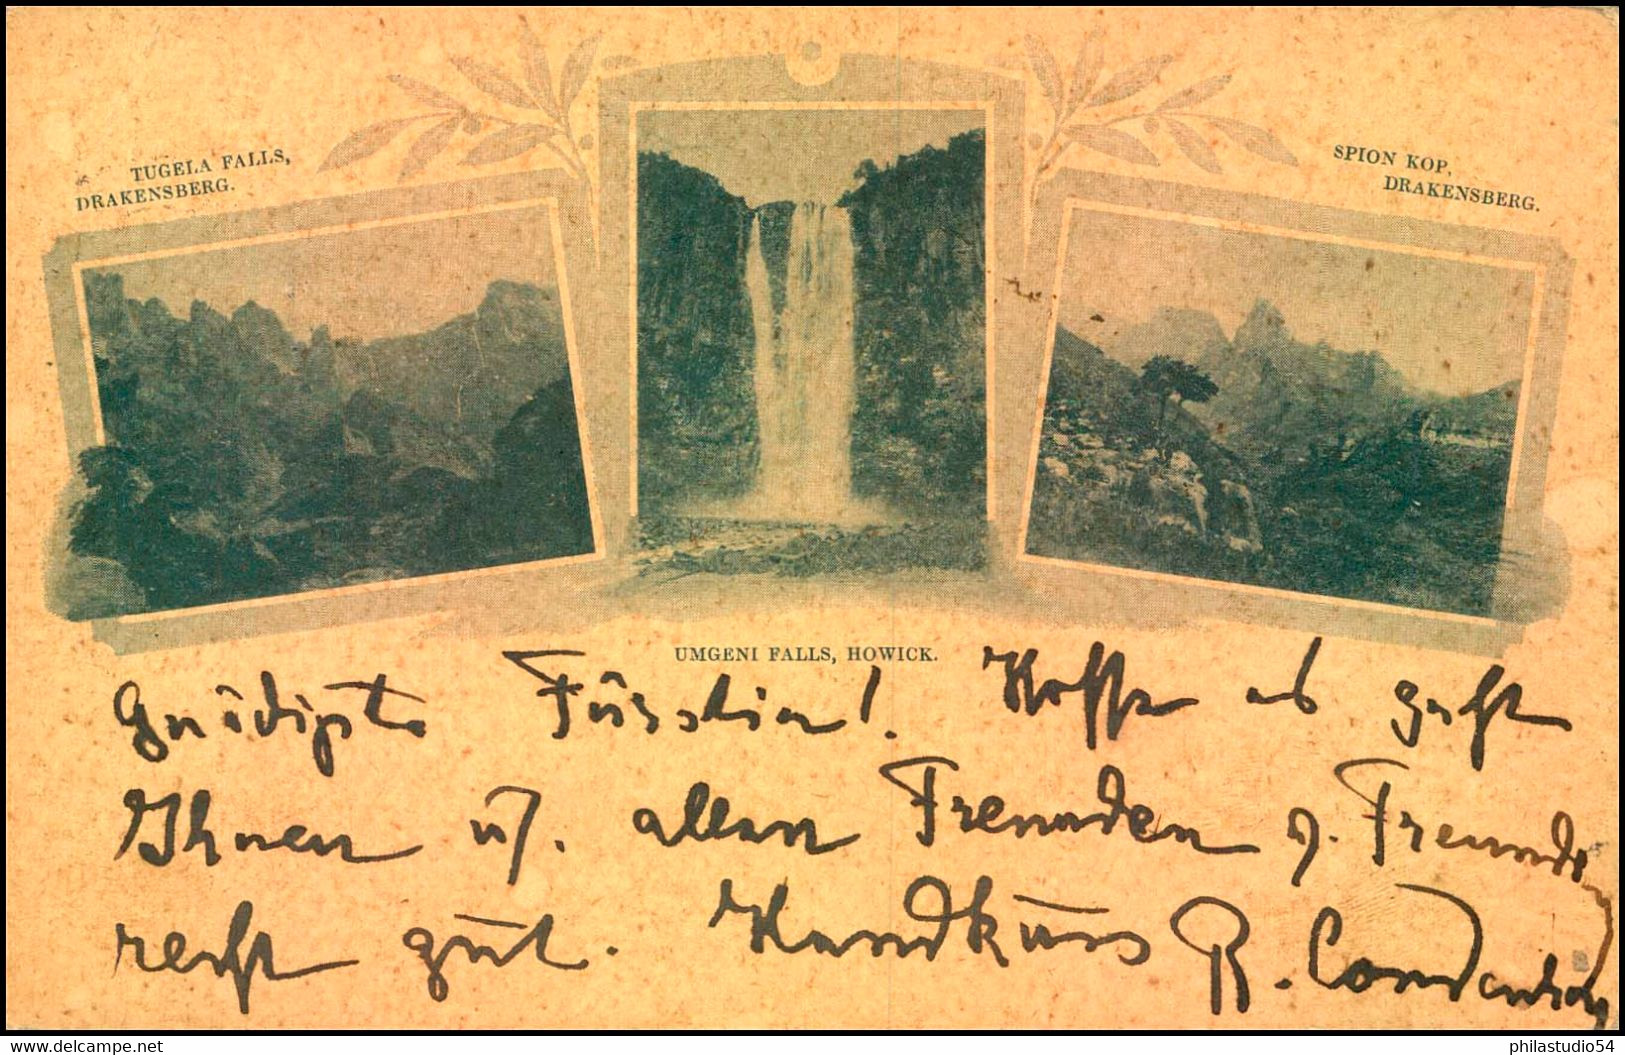 TUGELA FALLS,
DRAKENSBERG.
SPION KOP,
DRAKENSBERG.
UMGENI FALLS, HOWICK.
Gnädigste Fürstin! Hoffe es geht
Ihnen u. allen Freunden u. Freunden
recht gut. Handkuss R.
delcampe.net
philastudio54